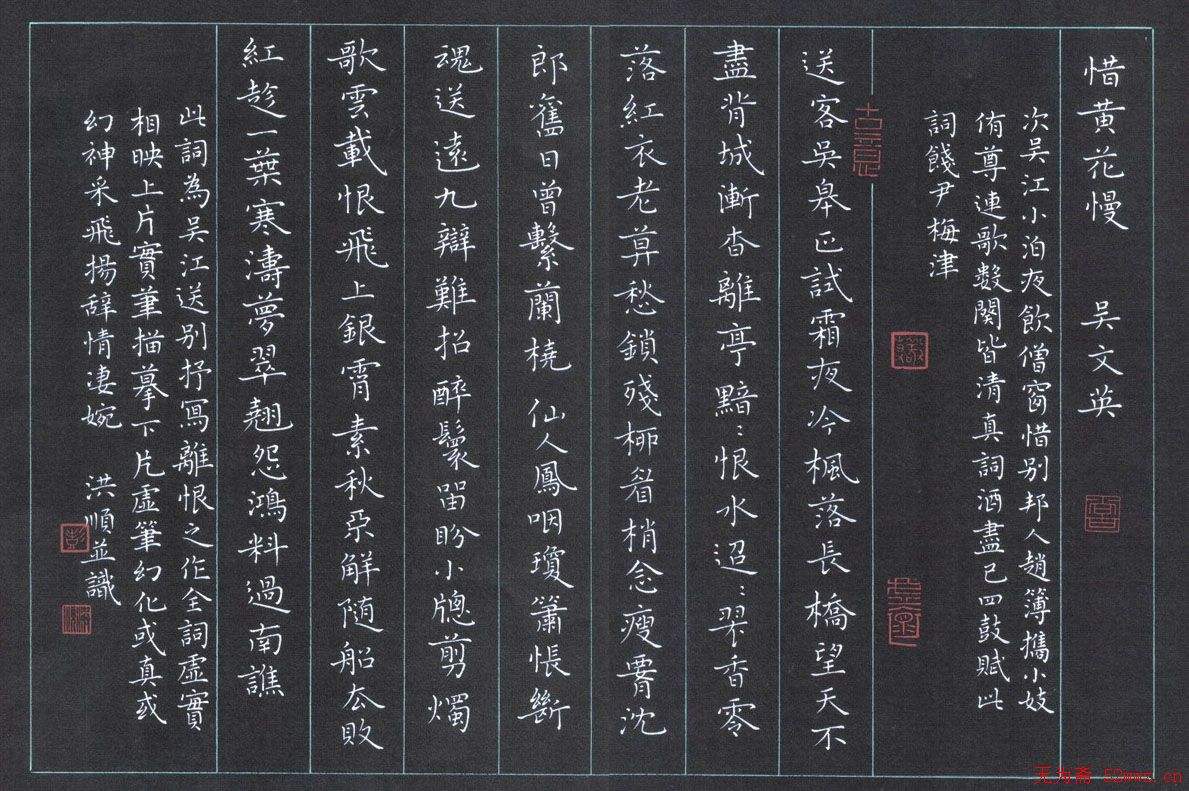 惜黄花慢　吴文英
次吴江小泊夜飲僧窗惜别邦人趙簿攜小妓
侑尊連歌数闋皆清真詞酒盡已四鼓賦此
詞餞尹梅津
送客吳皋正試霜夜冷楓落長橋望天不
盡背城漸杳離亭黯〻恨水迢〻翠香零
落紅衣老暮愁鎖殘柳眉梢念瘦腰沈
郎舊日曾繫蘭橈　仙人鳳咽瓊簫悵斷
魂送遠九辯難招醉鬟留盼小牕剪燭
歌雲載恨飛上銀霄素秋不解随船去敗
紅趁一葉寒濤夢翠翹怨鴻料過南譙
此詞為吴江送别抒寫離恨之作全詞虚實
相映上片實筆描摹下片虚筆幻化或真或
幻神采飛揚辞情凄婉　洪順並識
无为斋 52wwz.cn